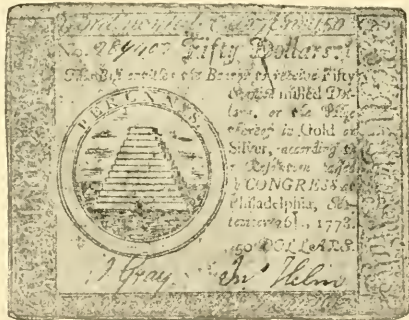 No. Fifty Dollars.
This Bill entitles the Bearer to receive Fifty
Spanish milled Dol-
lars, or the Value
thereof in Gold or
Silver, according to
a Resolution
by CONGRESS at
Philadelphia, Sep-
tember 26th, 1778.
50 DOLLARS.
PERENNIS.
J Gray Jno Helm